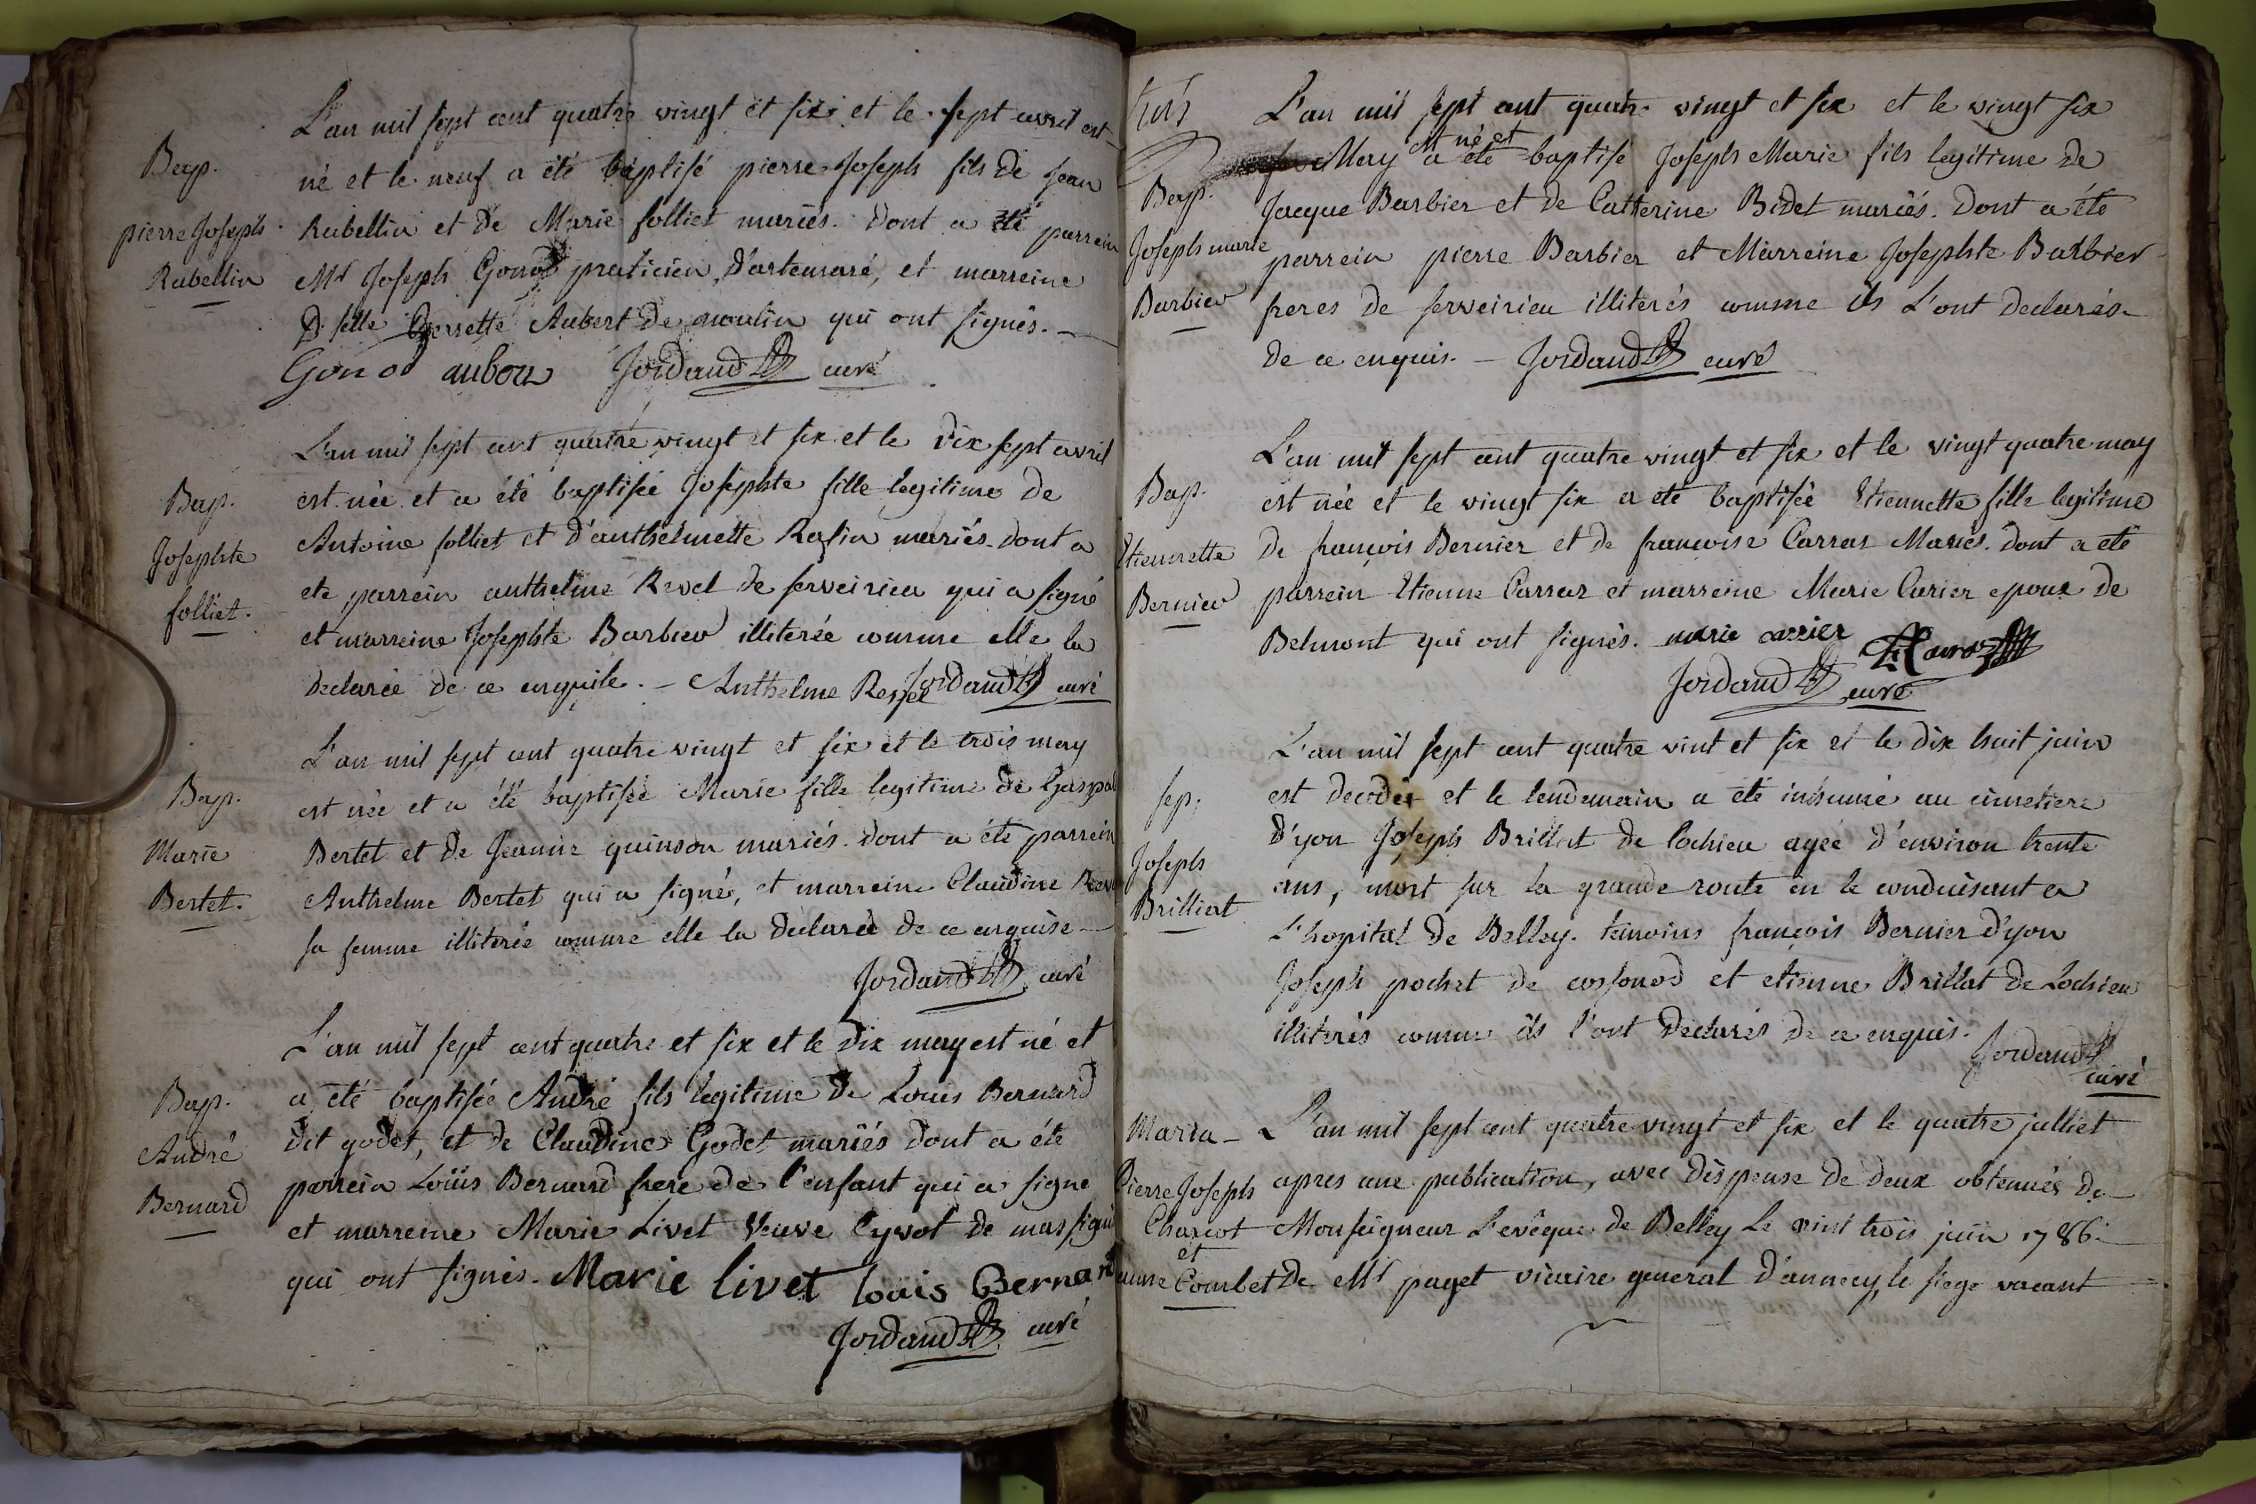 Bap.
pierre Joseph
Rubellin
L'an mil sept cent quatre vingt et six et le sept avril est
né et le neuf a été baptisé pierre Joseph fils de Jean
Rubellin et de Marie folliet mariés. Dont a été parrein
Mr Joseph Gonod praticien d'artemare, et marreine
D selle Aubert de moulin qui ont signés.
Gonod aubert Jordand curé
Bap.
Josephte
folliet.
L'an mil sept cent quatre vingt et six et le dix sept avril
est née et a été baptisée Josephte fille legitime de
Antoine folliet et d'anthelmette Rafin mariés. dont a
ete parrein anthelme Revel de serveirieu qui a signé
et marreine Josephte Barbier illiterée comme elle la
declarée de ce enquise. Anthelme Jordand curé
Bap.
Marie
Bertet.
L'an mil sept cent quatre vingt et six et le trois may
est née et a été baptisée Marie fille legitime de Gaspar
Bertet et de Jeanne quinson mariés. dont a été parrein
Anthelme Bertet qui a signé, et marreine Claudine
sa femme illiterée comme elle la declaréé de ce enquise
Jordand curé
Bap.
André
Bernard
L'an mil sept cent quatre et six et le dix may est né et
a été baptisée André fils legitime de Louis Bernard
dit godet, et de Claudine Godet mariés dont a été
parrein Loüis Bernard frere de l'enfant qui a signe
et marreine Marie Livet Veuve Cyvot de
qui ont signés. Marie livet louis Bernard
Jordand curé
Bap.
Joseph marie
Barbier
L'an mil sept cent quatre vingt et six et le vingt six
May est né et a été baptise Joseph Marie fils legitime de
Jacque Barbier et de Catterine Bidet mariés. Dont a été
parrein pierre Barbier et Marreine Josephte Barbier
freres de serveirieu illiterés comme ils L'ont declarés
de ce enquis. Jordand curé
Bap.
Etiennette
Bernier
L'an mil sept cent quatre vingt et six et le vingt quatre may
est née et le vingt six a ete baptisée Etiennette fille legitime
de françois Bernier et de francoise Carraz Mariés. dont a eté
parrein Etienne Carraz et marreine Marie Carier epoux de
Belmont qui ont signés. marie carrier
Jordand curé
sep.
Joseph
Brilliat
L'an mil sept cent quatre vint et six et le dix huit juin
est decedé et le lendemain a été inhumé au cimetiere
d'yon Joseph Brillat de lochieu agée d'environ trente
ans, mort sur la grande route en le conduisant a
L'hopital de Belley. temoins françois Bernier d'yon
Joseph pochet de cossonod et etienne Brillat de Lochieu
illiterés comme ils l'ont declarés de ce enquis.
Jordand
curé
Maria
Pierre Joseph
Charcot
et
Combet
L'an mil sept cent quatre vingt et six et le quatre julliet
apres une publication, avec dispense de deux obtenués de
Monseigneur L'evêque de Belley Le vint trois juin 1786.
de Mr paget vicaire general d'annecy, le siege vacant